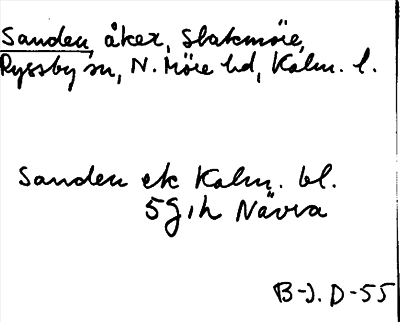 Sanden, åker, Slakmöre,
Ryssby sn, N. Möre hd, Kalm. l.
Sanden ek Kalm. bl.
5G1h Nävra
B-J. D-55